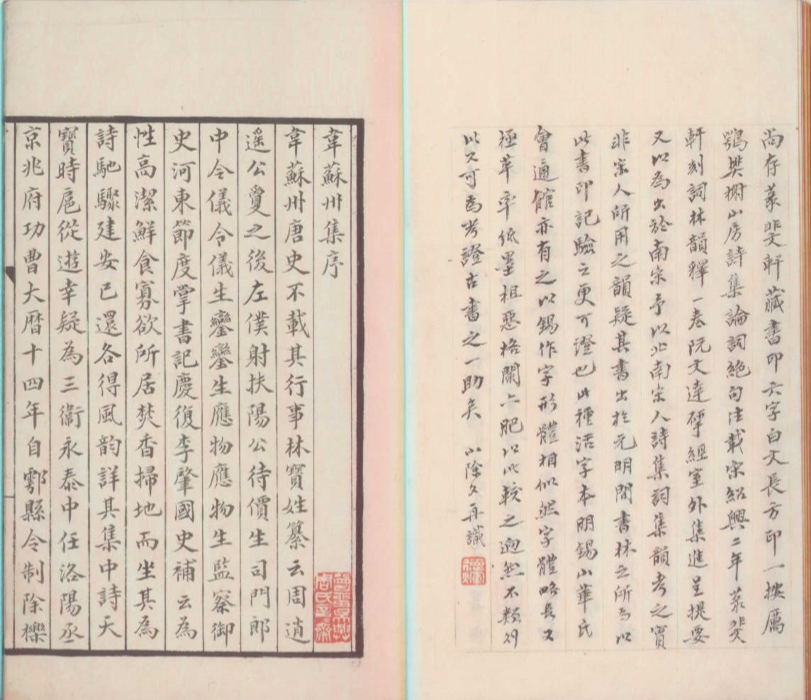 尚存菉斐軒藏書印六字白文長方印一按厲
鶚樊榭山房詩集論詞絕句注載宋紹興二年菉斐
軒刻詞林韻釋一卷阮文達揅經室外集進呈提要
又以為出於南宋予以北南宋人詩集詞集韻考之實
非宋人所用之韻疑其書出於元明間書林之所為以
此書印記驗之更可證也此種活字本明錫山華氏
會通館亦有之以錫作字形體相似然字體略長又
極草率紙墨粗惡格闌亦肥以此較之迥然不類列
以又可為考證古書之一助矣 小除夕再識
韋蘇州集序
韋蘇州唐史不載其行事林寶姓纂云周逍
遙公敻之後左僕射扶陽公待價生司門郎
中令儀令儀生鑾鑾生應物應物生監察御
史河東節度掌書記慶復李肇國史補云為
性高潔鮮食寡欲所居焚香掃地而坐其為
詩馳驟建安已還各得風韵詳其集中詩天
寶時扈從遊幸疑為三衞永泰中任洛陽丞
京兆府功曹大曆十四年自鄠縣令制除櫟